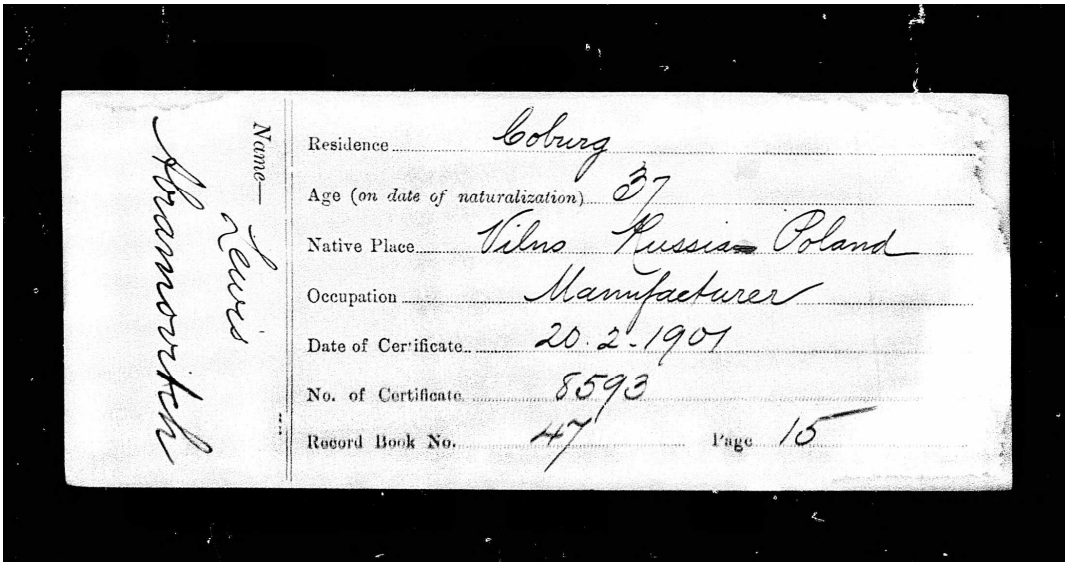 Name— Lewis
Abramovitch
Residence Coburg
Age (on date of naturalization) 37
Native Place Vilno Russia Poland
Occupation Manufacturer
Date of Certificate 20.2-1901
No. of Certificate 8593
Record Book No. 47 Page 15